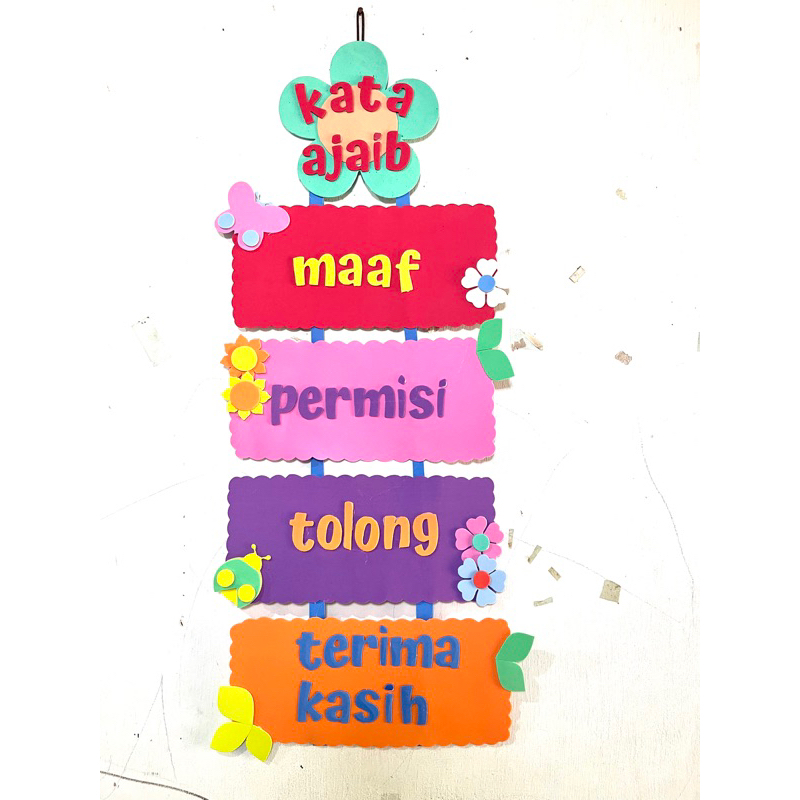 kata
ajaib
maaf
permisi
tolong
terima
kasih